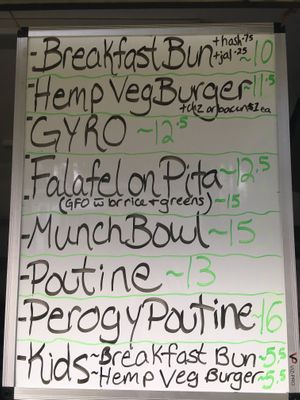 -Breakfast Bun +hash .75 ~10
+jal .25
-Hemp Veg Burger ~11.5
+chz or bacon $1 ea
-GYRO ~12.5
-Falafel on Pita ~12.5
(GFO w brrice + greens) ~15
-Munch Bowl ~15
-Poutine ~13
-Perogy Poutine ~16
-Kids ~Breakfast Bun ~5.5
~Hemp Veg Burger ~5.5